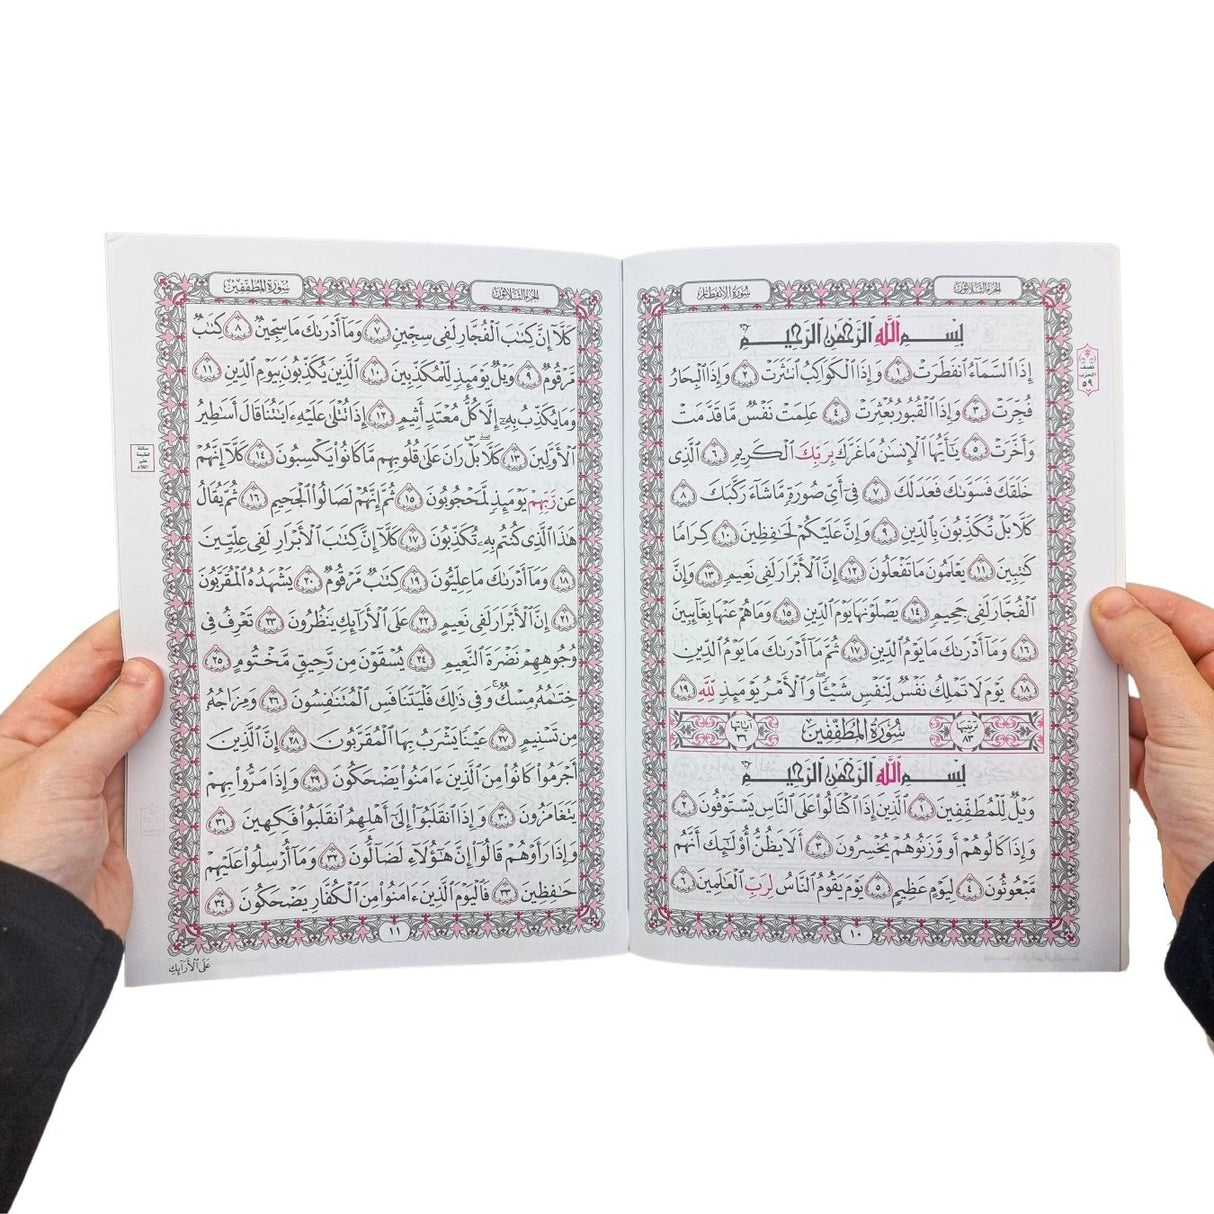 سُورَةُ الانفِطَار
الجُزءُ الثَّلَاثُونَ
بِسْمِ ٱللَّهِ ٱلرَّحْمَٰنِ ٱلرَّحِيمِ
إِذَا ٱلسَّمَآءُ ٱنفَطَرَتْ ١ وَإِذَا ٱلْكَوَاكِبُ ٱنتَثَرَتْ ٢ وَإِذَا ٱلْبِحَارُ
فُجِّرَتْ ٣ وَإِذَا ٱلْقُبُورُ بُعْثِرَتْ ٤ عَلِمَتْ نَفْسٌ مَّا قَدَّمَتْ
وَأَخَّرَتْ ٥ يَٰٓأَيُّهَا ٱلْإِنسَٰنُ مَا غَرَّكَ بِرَبِّكَ ٱلْكَرِيمِ ٦ ٱلَّذِى
خَلَقَكَ فَسَوَّىٰكَ فَعَدَلَكَ ٧ فِىٓ أَىِّ صُورَةٍ مَّا شَآءَ رَكَّبَكَ ٨
كَلَّا بَلْ تُكَذِّبُونَ بِٱلدِّينِ ٩ وَإِنَّ عَلَيْكُمْ لَحَٰفِظِينَ ١٠ كِرَامًا
كَٰتِبِينَ ١١ يَعْلَمُونَ مَا تَفْعَلُونَ ١٢ إِنَّ ٱلْأَبْرَارَ لَفِى نَعِيمٍ ١٣ وَإِنَّ
ٱلْفُجَّارَ لَفِى جَحِيمٍ ١٤ يَصْلَوْنَهَا يَوْمَ ٱلدِّينِ ١٥ وَمَا هُمْ عَنْهَا بِغَآئِبِينَ
١٦ وَمَآ أَدْرَىٰكَ مَا يَوْمُ ٱلدِّينِ ١٧ ثُمَّ مَآ أَدْرَىٰكَ مَا يَوْمُ ٱلدِّينِ
١٨ يَوْمَ لَا تَمْلِكُ نَفْسٌ لِّنَفْسٍ شَيْـًٔا ۖ وَٱلْأَمْرُ يَوْمَئِذٍ لِّلَّهِ ١٩
ترتيبها ٨٣ سُورَةُ المُطَفِّفِين آياتها ٣٦
بِسْمِ ٱللَّهِ ٱلرَّحْمَٰنِ ٱلرَّحِيمِ
وَيْلٌ لِّلْمُطَفِّفِينَ ١ ٱلَّذِينَ إِذَا ٱكْتَالُوا۟ عَلَى ٱلنَّاسِ يَسْتَوْفُونَ ٢
وَإِذَا كَالُوهُمْ أَو وَّزَنُوهُمْ يُخْسِرُونَ ٣ أَلَا يَظُنُّ أُو۟لَٰٓئِكَ أَنَّهُم
مَّبْعُوثُونَ ٤ لِيَوْمٍ عَظِيمٍ ٥ يَوْمَ يَقُومُ ٱلنَّاسُ لِرَبِّ ٱلْعَٰلَمِينَ ٦
١٠
نصف
الحزب
٥٩
سُورَةُ المُطَفِّفِين
الجُزءُ الثَّلَاثُونَ
كَلَّآ إِنَّ كِتَٰبَ ٱلْفُجَّارِ لَفِى سِجِّينٍ ٧ وَمَآ أَدْرَىٰكَ مَا سِجِّينٌ ٨ كِتَٰبٌ
مَّرْقُومٌ ٩ وَيْلٌ يَوْمَئِذٍ لِّلْمُكَذِّبِينَ ١٠ ٱلَّذِينَ يُكَذِّبُونَ بِيَوْمِ ٱلدِّينِ ١١
وَمَا يُكَذِّبُ بِهِۦٓ إِلَّا كُلُّ مُعْتَدٍ أَثِيمٍ ١٢ إِذَا تُتْلَىٰ عَلَيْهِ ءَايَٰتُنَا قَالَ أَسَٰطِيرُ
ٱلْأَوَّلِينَ ١٣ كَلَّا ۖ بَلْ ۜ رَانَ عَلَىٰ قُلُوبِهِم مَّا كَانُوا۟ يَكْسِبُونَ ١٤ كَلَّآ إِنَّهُمْ
عَن رَّبِّهِمْ يَوْمَئِذٍ لَّمَحْجُوبُونَ ١٥ ثُمَّ إِنَّهُمْ لَصَالُوا۟ ٱلْجَحِيمِ ١٦ ثُمَّ يُقَالُ
هَٰذَا ٱلَّذِى كُنتُم بِهِۦ تُكَذِّبُونَ ١٧ كَلَّآ إِنَّ كِتَٰبَ ٱلْأَبْرَارِ لَفِى عِلِّيِّينَ
١٨ وَمَآ أَدْرَىٰكَ مَا عِلِّيُّونَ ١٩ كِتَٰبٌ مَّرْقُومٌ ٢٠ يَشْهَدُهُ ٱلْمُقَرَّبُونَ
٢١ إِنَّ ٱلْأَبْرَارَ لَفِى نَعِيمٍ ٢٢ عَلَى ٱلْأَرَآئِكِ يَنظُرُونَ ٢٣ تَعْرِفُ فِى
وُجُوهِهِمْ نَضْرَةَ ٱلنَّعِيمِ ٢٤ يُسْقَوْنَ مِن رَّحِيقٍ مَّخْتُومٍ ٢٥
خِتَٰمُهُۥ مِسْكٌ ۚ وَفِى ذَٰلِكَ فَلْيَتَنَافَسِ ٱلْمُتَنَٰفِسُونَ ٢٦ وَمِزَاجُهُۥ
مِن تَسْنِيمٍ ٢٧ عَيْنًا يَشْرَبُ بِهَا ٱلْمُقَرَّبُونَ ٢٨ إِنَّ ٱلَّذِينَ
أَجْرَمُوا۟ كَانُوا۟ مِنَ ٱلَّذِينَ ءَامَنُوا۟ يَضْحَكُونَ ٢٩ وَإِذَا مَرُّوا۟ بِهِمْ
يَتَغَامَزُونَ ٣٠ وَإِذَا ٱنقَلَبُوٓا۟ إِلَىٰٓ أَهْلِهِمُ ٱنقَلَبُوا۟ فَكِهِينَ ٣١
وَإِذَا رَأَوْهُمْ قَالُوٓا۟ إِنَّ هَٰٓؤُلَآءِ لَضَآلُّونَ ٣٢ وَمَآ أُرْسِلُوا۟ عَلَيْهِمْ
حَٰفِظِينَ ٣٣ فَٱلْيَوْمَ ٱلَّذِينَ ءَامَنُوا۟ مِنَ ٱلْكُفَّارِ يَضْحَكُونَ ٣٤
١١
عَلَى ٱلْأَرَآئِكِ
سكتة
لطيفة
على
اللام